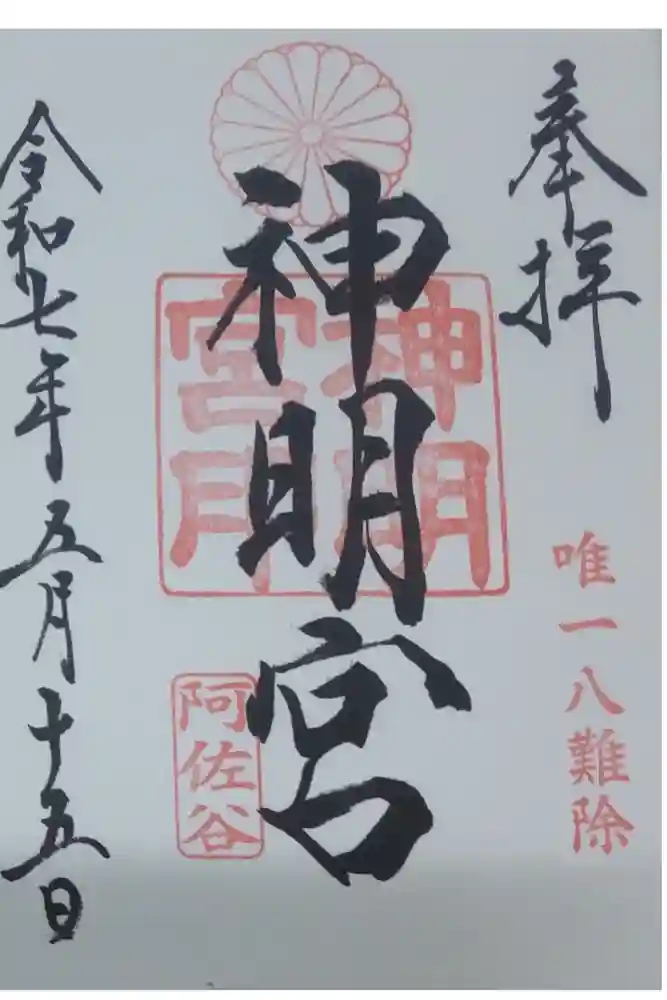 奉拝
唯一八難除
神明宮
神明
宮印
阿佐谷
令和七年五月十五日